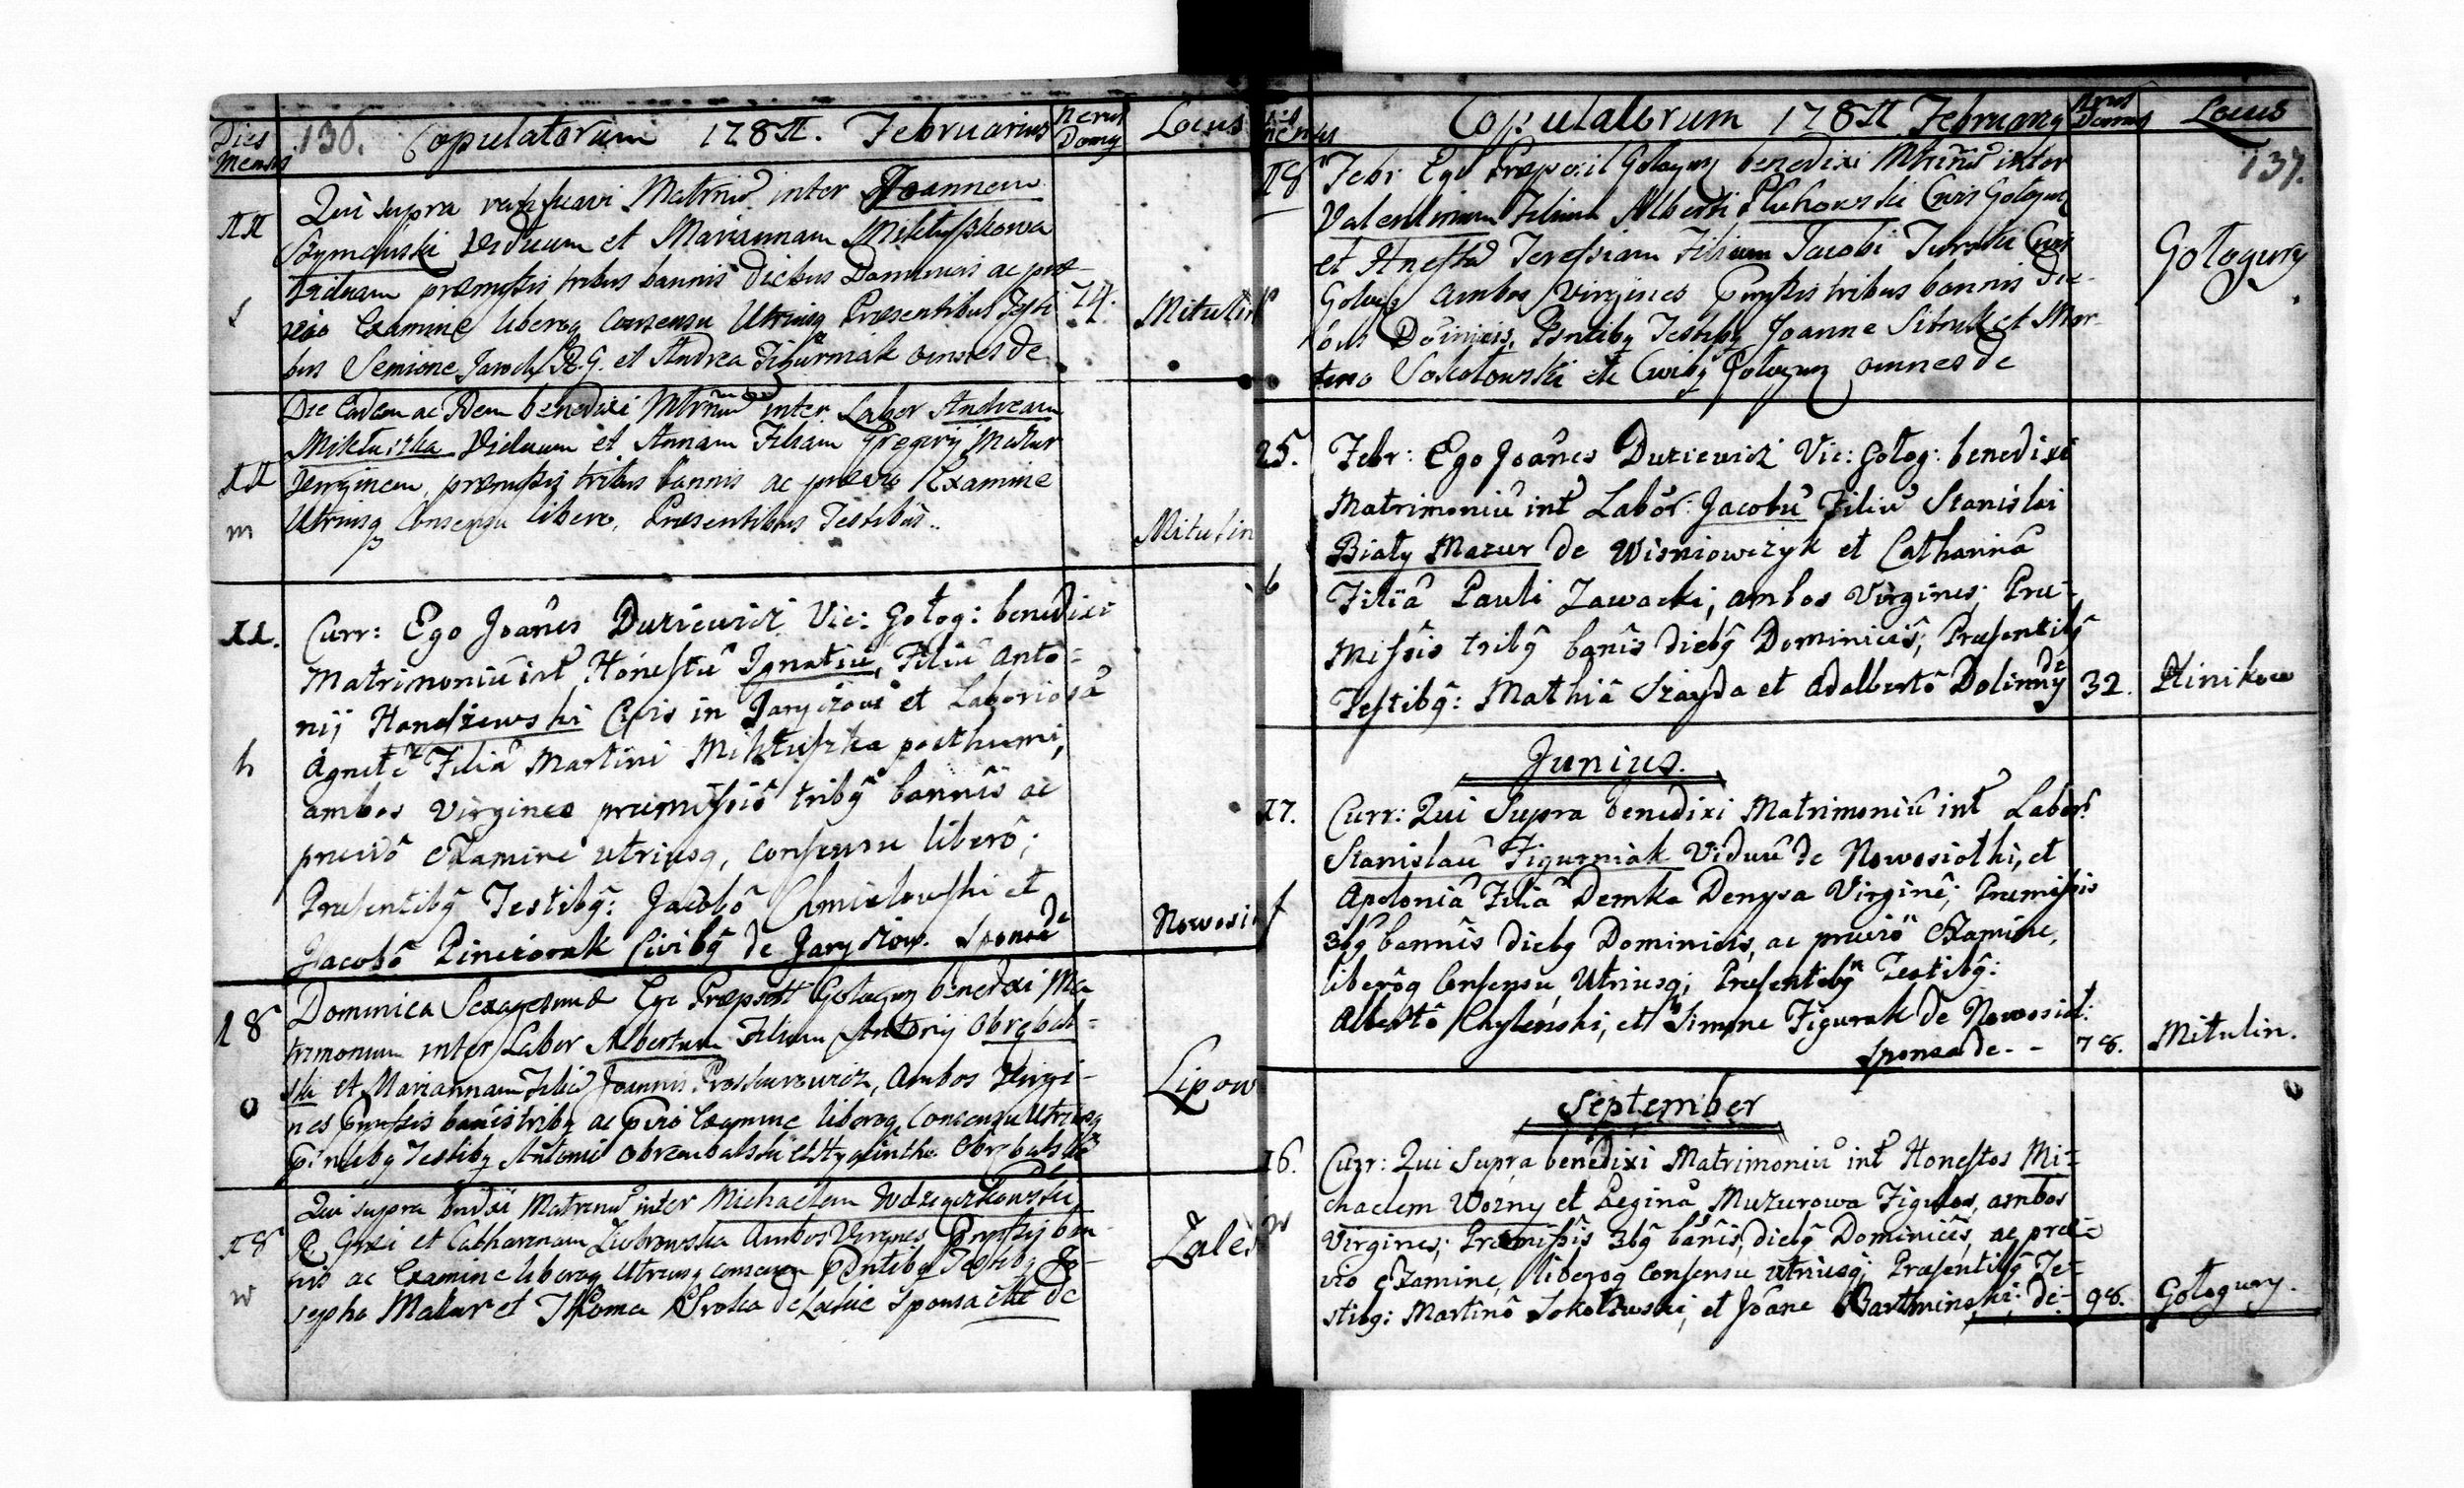 Dies Mensis 136. Copulatorum 178II. Februarius Nerus Domq Locus
II Qui supra ratificavi Matrim̃ inter Joannem
Szymański Viduum et Mariannam Miktuszkowa
Viduam præmissis tribus bannis diebus Dominicis ac præ-
vio Examine liberoq Consensu Utriusq Præsentibus Testi 74. Mitulin
bus Semione R. G. et Andrea Figurniak omnes de
Die Eadem ac Idem benedixi Mtrim̃ inter Labor Andream
Miktuszka Viduum et Annam Filiam Gregorij Mazur
II Virginem, præmissis tribus bannis ac prævio Examine
m Utriusq Consensu libero, Præsentibus Testibus.. Mitulin
II. Curr: Ego Joañes Duriewicz Vic: Gołog: benedixi
Matrimoniũ int Honestũ Ignatiũ, Filiũ Anto=
nij Handzewski Civis in Jaryczow et Laboriosã
h Agnetẽ Filiã Martini Miktuszka posthumi,
ambos Virgines præmissis tribq̃ bannis ac
præviõ Examine utriusq, consensu liberõ;
Præsentibq̃ Testibq̃: Jacobõ Chmielowski et
Jacobõ Pinczorak Civibq̃ de Jaryczow. Sponsa de Nowosi
18 Dominica Sexagesimæ Ego Præposit Gołogur benedixi Ma
trimonium inter Labor Albertum Filium Antonij Obrębal=
ski et Mariannam Filiã Joannis Proskurowicz, Ambos Virgi- Lipow
o nes Pmissis bannis tribq ac pvio Examine liberoq Consensu Utriusq
Pñtibq Testibq Antonio Obrembalski et Hyacintho Obrębalski
Qui supra bndixi Matrim̃ inter Michaelem Wdzięczkowski
18 R. Græci et Catharinam Zubrowska Ambos Virgines Pmissis ban Zales
w nis ac Examine liberoq Utriusq consensu Psntibq Testibq Jo-
sepho Mazur et Thoma Sroka de Sponsa de
Dies Mensis Copulatorum 178II Februarq Nrus Domus Locus
18 Febr Ego Præposit Gologur benedixi Mtrim̃ inter 137.
Valentinum Filium Alberti Pluhowski Civis Gologur
et Honestã Teressiam Filiam Jacobi Turski Civis Gołogury
Gologur Ambos Virgines Pmissis tribus bannis die-
bus Dominicis, Psntibq Testibq Joanne Sitnik et Mar-
tino Sokołowski Civibq Gologur omnes de
25. Febr: Ego Joañes Duriewicz Vic: Gołog: benedixi
Matrimoniũ int Labor: Jacobũ Filiũ Stanislai
Biały Mazur de Wisniowczyk et Catharinã
b Filiã Pauli Zawacki; ambos Virgines; Præ-
missis tribq̃ banis diebq̃ Dominicis; Præsentibq̃
Testibq̃: Mathiã Szayda et Adalbertõ Dolinny de 32. Plinikow
Junius.
17. Curr: Qui Supra benedixi Matrimoniũ int Labor:
Stanislaũ Figurniak Viduũ de Nowosiołki, et
Apoloniã Filiã Demka Denysa Virginẽ; Præmissis
f 3bq̃ bannis diebq Dominicis, ac præviõ Examine,
liberõq Consensu, Utriusq; Præsentibq̃ Testibq̃:
Albertõ Chyleński, et Simone Figurak de Nowosioł:
Sponsa de - - 78. Mitulin.
September
16. Curr: Qui Supra benedixi Matrimoniũ int Honestos Mi=
chaelem Woźny et Reginã Muzurowa Figulos, ambos
w Virgines; Præmissis 3bq̃ bañis, diebq̃ Dominicis, ac præ=
vio Examine, liberoq Consensu utriusq; Præsentibq̃ Te=
stibq: Martinõ Sokołowski, et Joãne Bartminski de- 98. Gołogury.